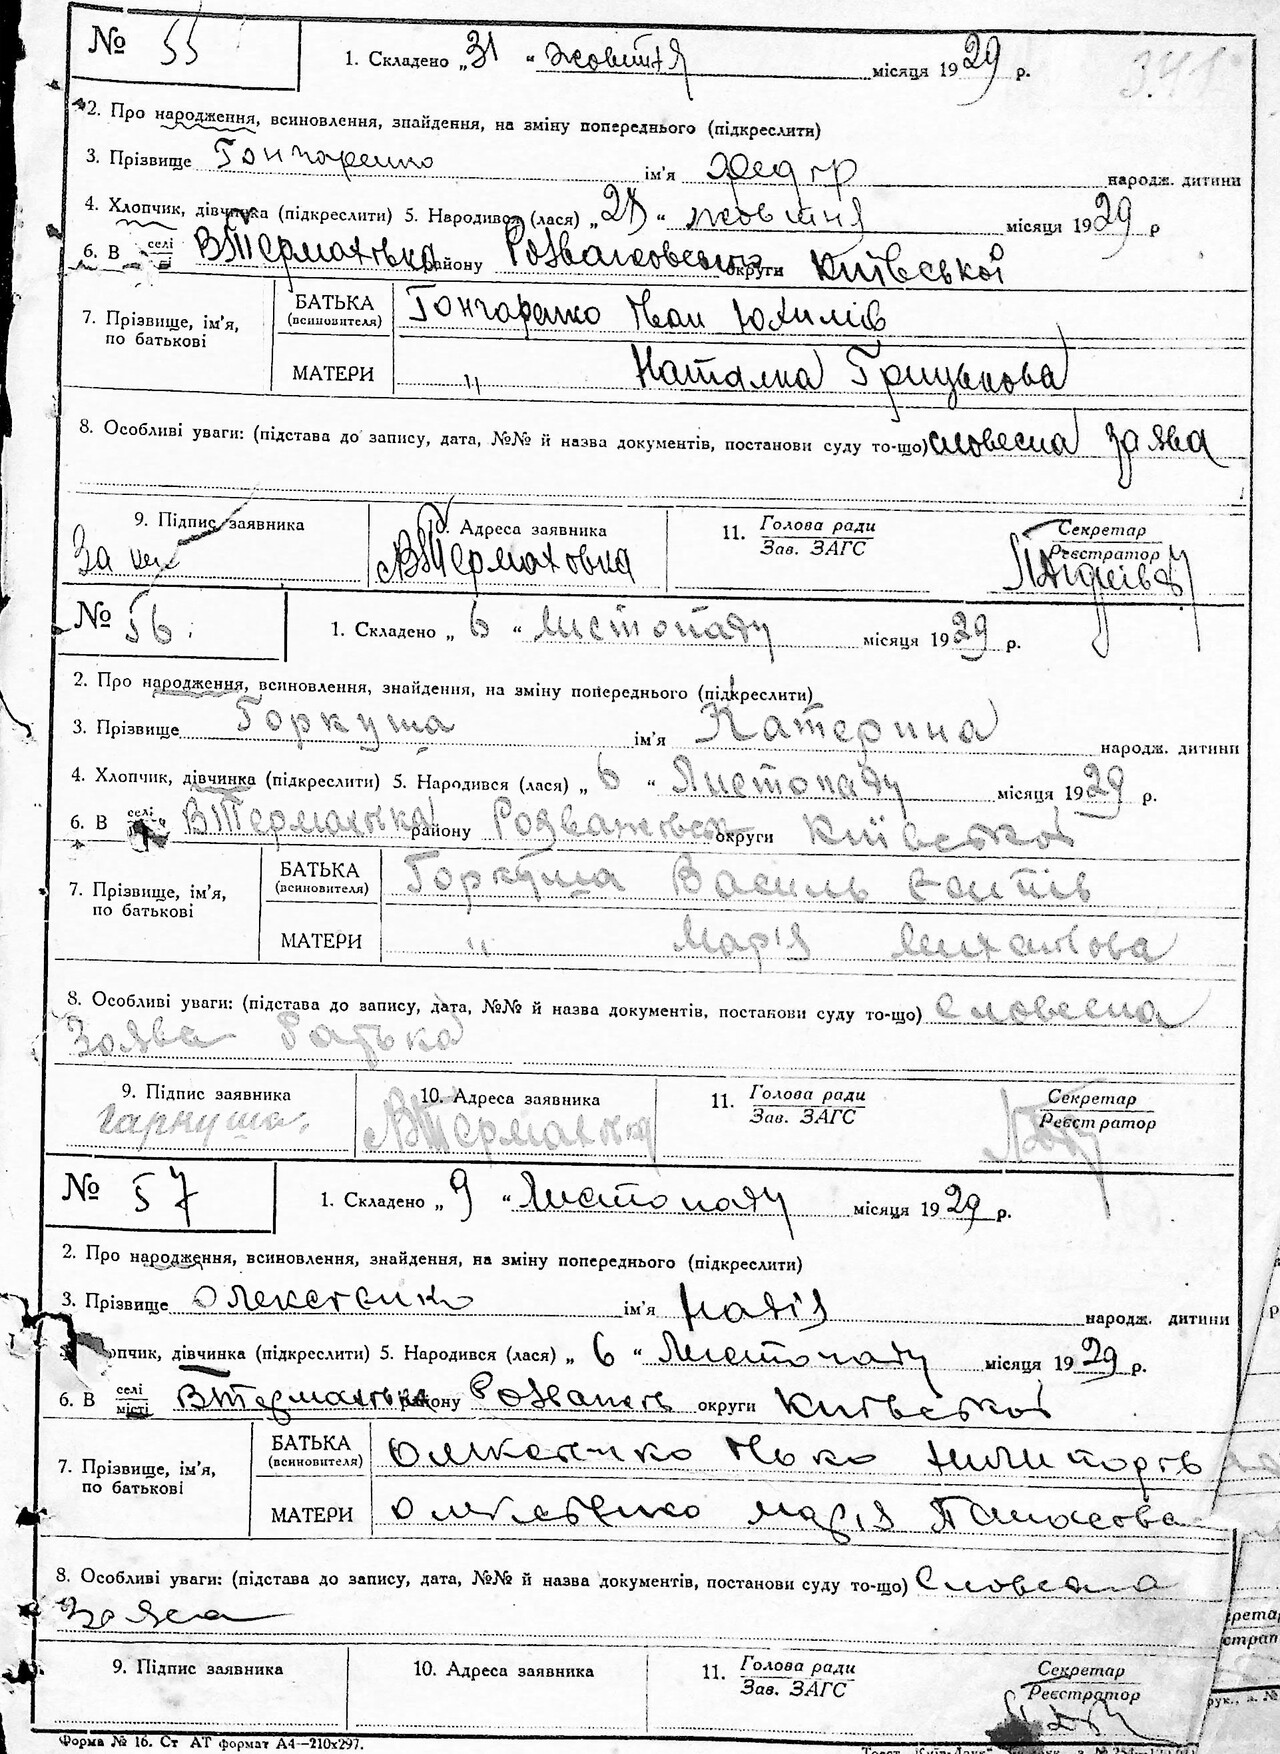 № 55
1. Складено „31" жовтня місяця 1929 р.
341
2. Про народження, всиновлення, знайдення, на зміну попереднього (підкреслити)
3. Прізвище Гончаренко ім'я Федір народж. дитини
4. Хлопчик, дівчинка (підкреслити) 5. Народився (лася) „ " жовтня місяця 1929 р
6. В селі ВТермахівка району Розважовськ округи Київської
7. Прізвище, ім'я, по батькові
БАТЬКА (всиновителя) Гончаренко Іван Юхимів
МАТЕРИ " Наталка Грицькова
8. Особливі уваги: (підстава до запису, дата, №№ й назва документів, постанови суду то-що) словесна заява
9. Підпис заявника
За
Адреса заявника
ВТермаховка
11. Голова ради
Зав. ЗАГС
Секретар
Реєстратор
№ 56.
1. Складено „6" Листопаду місяця 1929 р.
2. Про народження, всиновлення, знайдення, на зміну попереднього (підкреслити)
3. Прізвище Горкуша ім'я Катерина народж. дитини
4. Хлопчик, дівчинка (підкреслити) 5. Народився (лася) „6" Листопаду місяця 1929 р.
6. В селі ВТермахівка району Розважівськ округи Київської
7. Прізвище, ім'я, по батькові
БАТЬКА (всиновителя) Горкуша Василь
МАТЕРИ " Марія
8. Особливі уваги: (підстава до запису, дата, №№ й назва документів, постанови суду то-що) словесна
Заява батька
9. Підпис заявника
гаркуша.
10. Адреса заявника
ВТермахівка
11. Голова ради
Зав. ЗАГС
Секретар
Реєстратор
№ 57
1. Складено „9" Листопаду місяця 1929 р.
2. Про народження, всиновлення, знайдення, на зміну попереднього (підкреслити)
3. Прізвище Олексієнко ім'я Надія народж. дитини
опчик, дівчинка (підкреслити) 5. Народився (лася) „6" Листопаду місяця 1929 р.
6. В селі місті ВТермахівка району Розважів округи Київської
7. Прізвище, ім'я, по батькові
БАТЬКА (всиновителя) Олексієнко
МАТЕРИ Олексієнко Марія Панасова
8. Особливі уваги: (підстава до запису, дата, №№ й назва документів, постанови суду то-що) Словесна
Заява
9. Підпис заявника
10. Адреса заявника
11. Голова ради
Зав. ЗАГС
Секретар
Реєстратор
Форма № 16. Ст АТ формат А4—210х297.